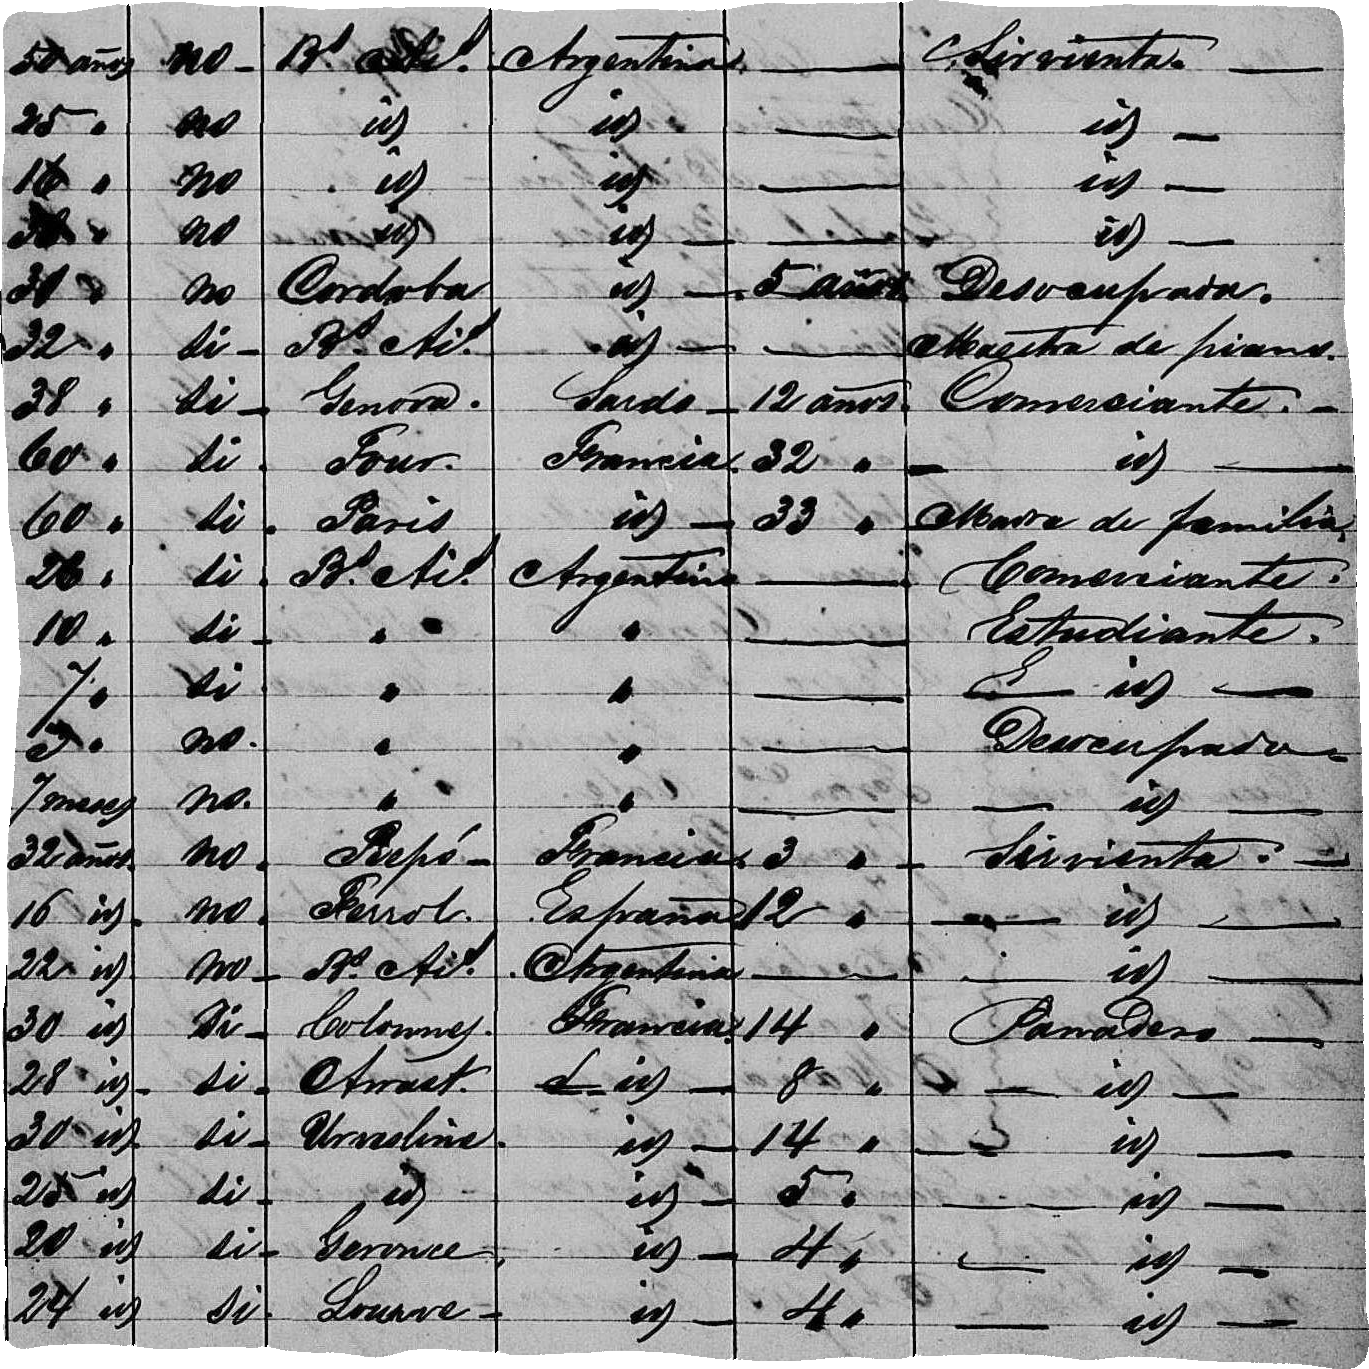 50 años no - Bs. Ais. Argentina — Sirvienta. —
25 " no id id — id —
16 " no id id — id —
" no id id — — id —
30 " no Cordoba id — 5 años Desocupada.
32 " si - Bs. Ais. id — — Maestra de piano.
38 " si - Genova. Sardo - 12 años. Comerciante. -
60 " si Tour. Francia. 32 " - id —
60 " si . Paris id — 33 " Madre de familia
26 " si . Bs. Ais. Argentina — Comerciante.
10 " si - " " — Estudiante.
7 " si " " — — id —
" no. " " — Desocupado -
7 meses no. " " — — id —
32 años. no. Repó - Francia. 3 " - Sirvienta. —
16 id. no. Ferrol. España 12 " — id —
22 id no - Bs. Ais. Argentina — id —
30 id si - Colonney. Francia. 14 " Panadero —
28 id - si - id — 8 " — id —
30 id si - id — 14 " — id —
25 id si - id id - 5 " — id —
20 id si - Geronce id — 4 " — id —
24 id si - id — 4 " — id —